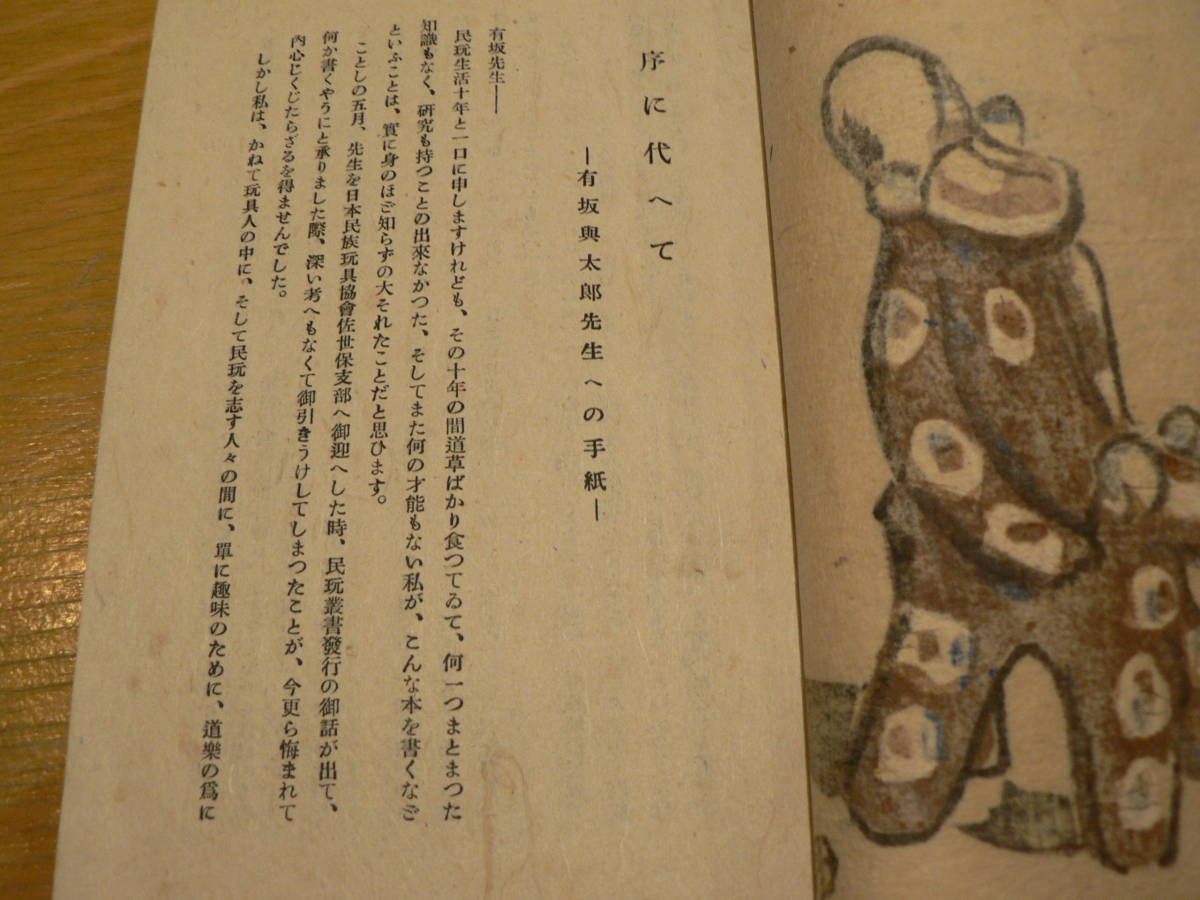 序に代へて
―有坂與太郎先生への手紙―
有坂先生――
民玩生活十年と一口に申しますけれども、その十年の間道草ばかり食つてゐて、何一つまとまつた
知識もなく、研究も持つことの出來なかつた、そしてまた何の才能もない私が、こんな本を書くなど
といふことは、實に身のほど知らずの大それたことだと思ひます。
ことしの五月、先生を日本民族玩具協會佐世保支部へ御迎へした時、民玩叢書發行の御話が出て、
何か書くやうにと承りました際、深い考へもなくて御引きうけしてしまつたことが、今更ら悔まれて
內心じくじたらざるを得ませんでした。
しかし私は、かねて玩具人の中に、そして民玩を志す人々の間に、單に趣味のために、道樂の爲に